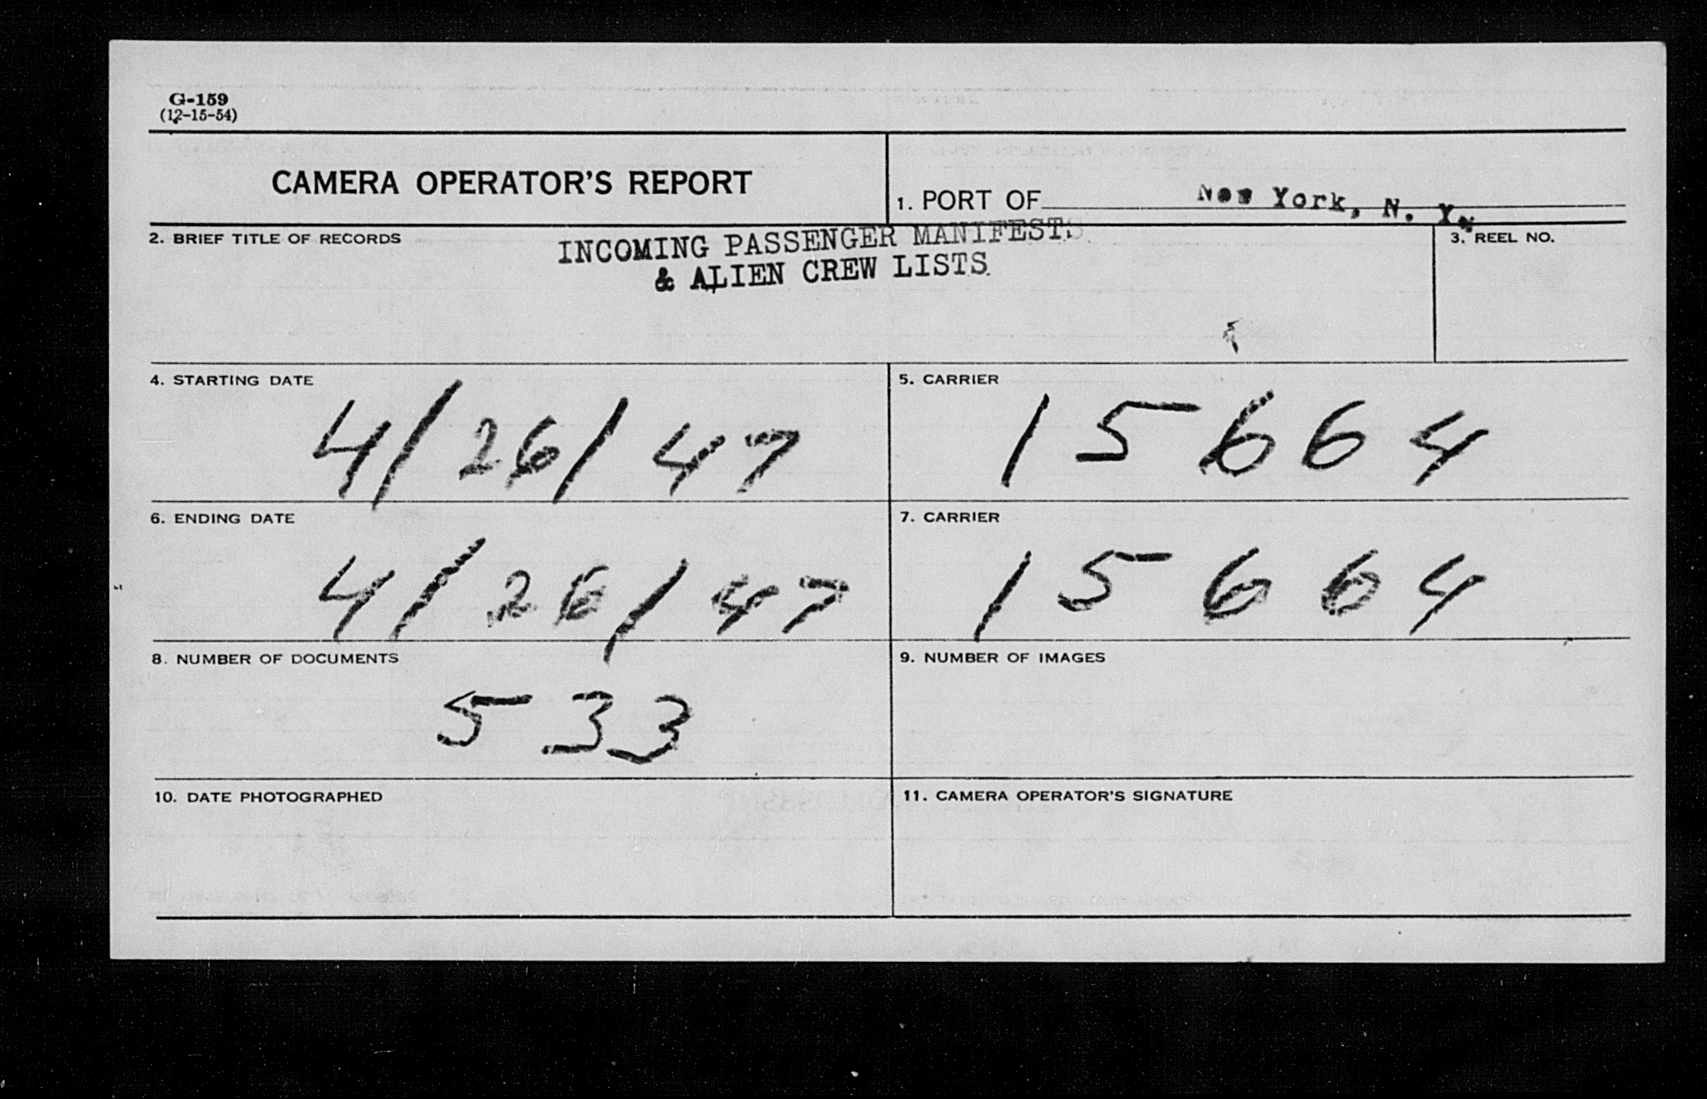 G-159
(12-15-54)
CAMERA OPERATOR'S REPORT
1. PORT OF New York, N. Y.
2. BRIEF TITLE OF RECORDS
INCOMING PASSENGER MANIFESTS
& ALIEN CREW LISTS
3. REEL NO.
4. STARTING DATE
4/26/47
5. CARRIER
15664
6. ENDING DATE
4/26/47
7. CARRIER
15664
8. NUMBER OF DOCUMENTS
533
9. NUMBER OF IMAGES
10. DATE PHOTOGRAPHED
11. CAMERA OPERATOR'S SIGNATURE